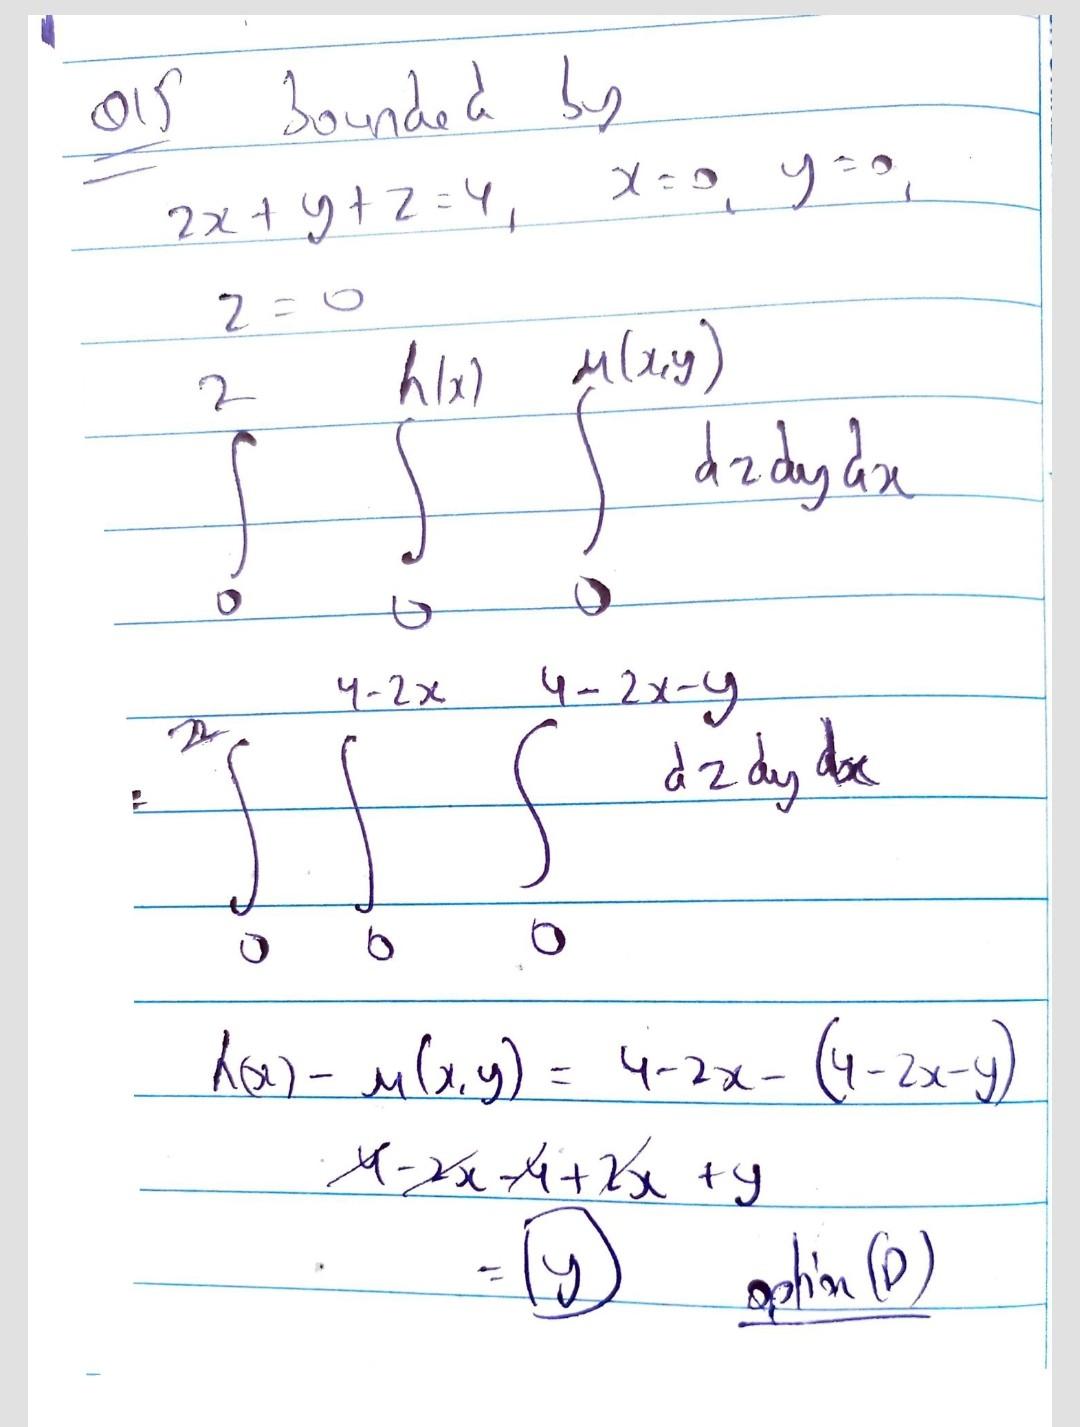 Q15 bounded by
2x + y + z = 4, x = 0, y = 0,
z = 0
∫_0^2 ∫_0^{h(x)} ∫_0^{μ(x,y)} dz dy dx
= ∫_0^2 ∫_0^{4-2x} ∫_0^{4-2x-y} dz dy dx
h(x) - μ(x,y) = 4-2x - (4-2x-y)
4-2x-4+2x +y
= y option (D)